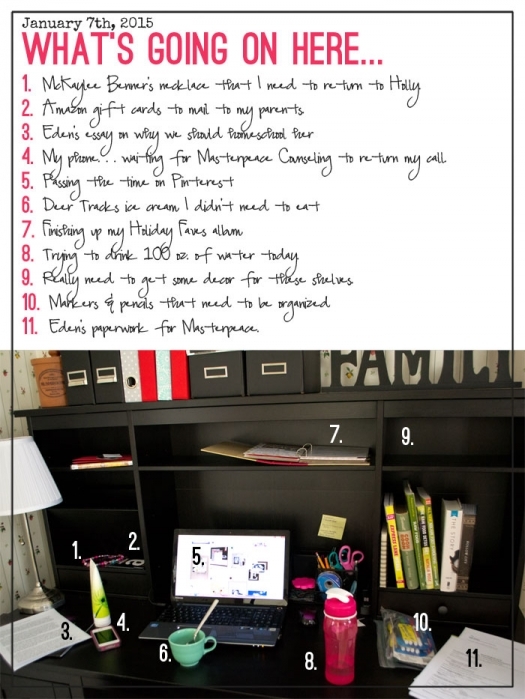 January 7th, 2015
WHAT'S GOING ON HERE...
1. McKaylee Benner's necklace that I need to return to Holly
2. Amazon gift cards to mail to my parents.
3. Eden's essay on why we should homeschool her
4. My phone... waiting for Masterpeace Counseling to return my call.
5. Passing the time on Pinterest
6. Deer Tracks ice cream I didn't need to eat
7. Finishing up my Holiday Faves album
8. Trying to drink 100 oz. of water today
9. Really need to get some decor for these shelves.
10. Markers & pencils that need to be organized
11. Eden's paperwork for Masterpeace.
FAMILY
7.
9.
1.
2.
5.
3.
4.
6.
8.
10.
11.
THE STORY